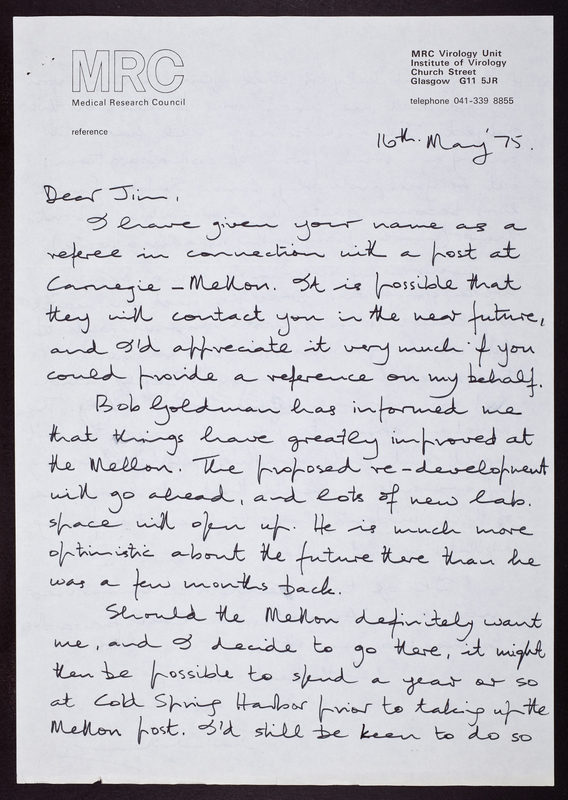 MRC
Medical Research Council
reference
MRC Virology Unit
Institute of Virology
Church Street
Glasgow G11 5JR
telephone 041-339 8855
16th. May '75.
Dear Jim,
I have given your name as a
referee in connection with a post at
Carnegie-Mellon. It is possible that
they will contact you in the near future,
and I'd appreciate it very much if you
could provide a reference on my behalf.
Bob Goldman has informed me
that things have greatly improved at
the Mellon. The proposed re-development
will go ahead, and lots of new lab.
space will open up. He is much more
optimistic about the future there than he
was a few months back.
Should the Mellon definitely want
me, and I decide to go there, it might
then be possible to spend a year or so
at Cold Spring Harbor prior to taking up the
Mellon post. I'd still be keen to do so